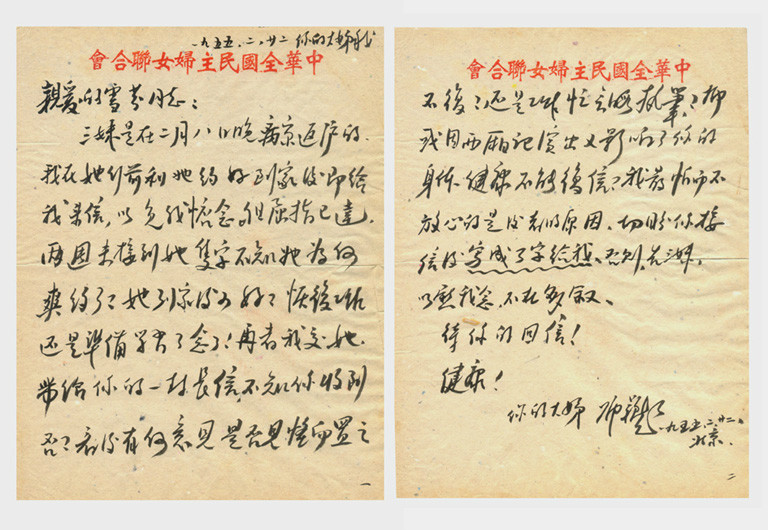 一九五五、二、廿二 你的大姊
會合聯女婦主民國全華中
親愛的雪芬同志：
三妹是在二月八日晚離京返滬的。
我在她行前和她約好到家後即給
我來信，以免我懷念，但屈指已達
兩週未接到她隻字不知她為何
爽約了？她到家後可好？恢復工作
還是準備學習了念了！再者我交她
帶給你的一封長信不知你收到
否？看後有何意見是否見怪而置之
一
會合聯女婦主民國全華中
不復？還是工作忙無暇執筆？抑
或因西廂記演出又影響了你的
身體健康不能復信？我最怕而不
放心的是後者的原因、切盼你接
信後寫幾個字給我、否則、三妹、
以慰我念、不在多叙、
待你的回信！
健康！
你的大姊
一九五五、二、廿二、
北京、
二